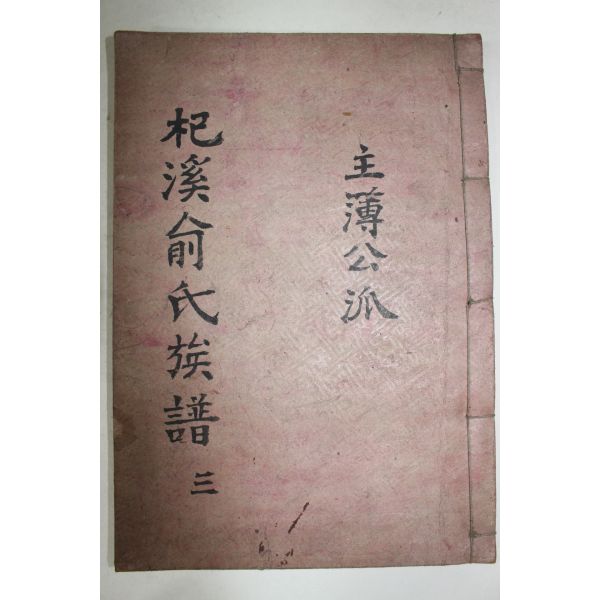 主薄公派
杞溪俞氏族譜 三